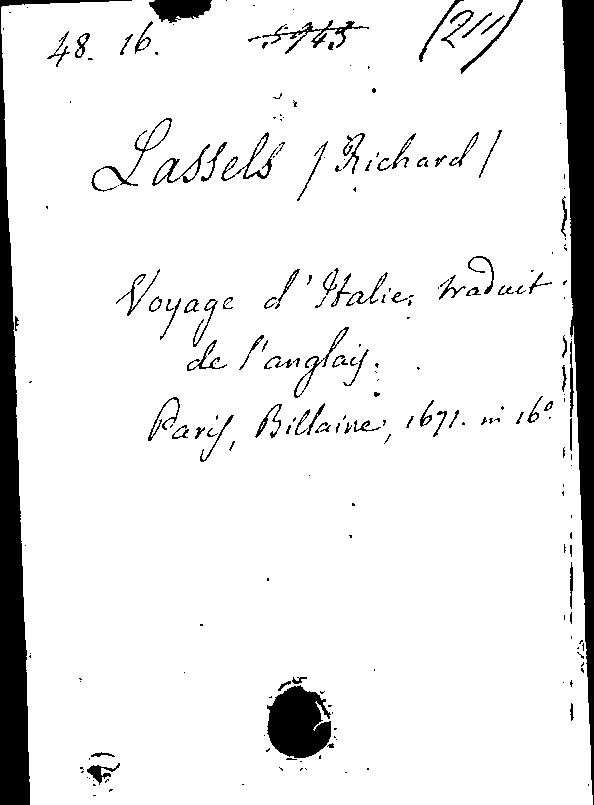 48. 16. 5943 (211)
Lassels / Richard /
Voyage d'Italie, traduit
de l'anglais.
Paris, Billaine, 1671. in 16º.